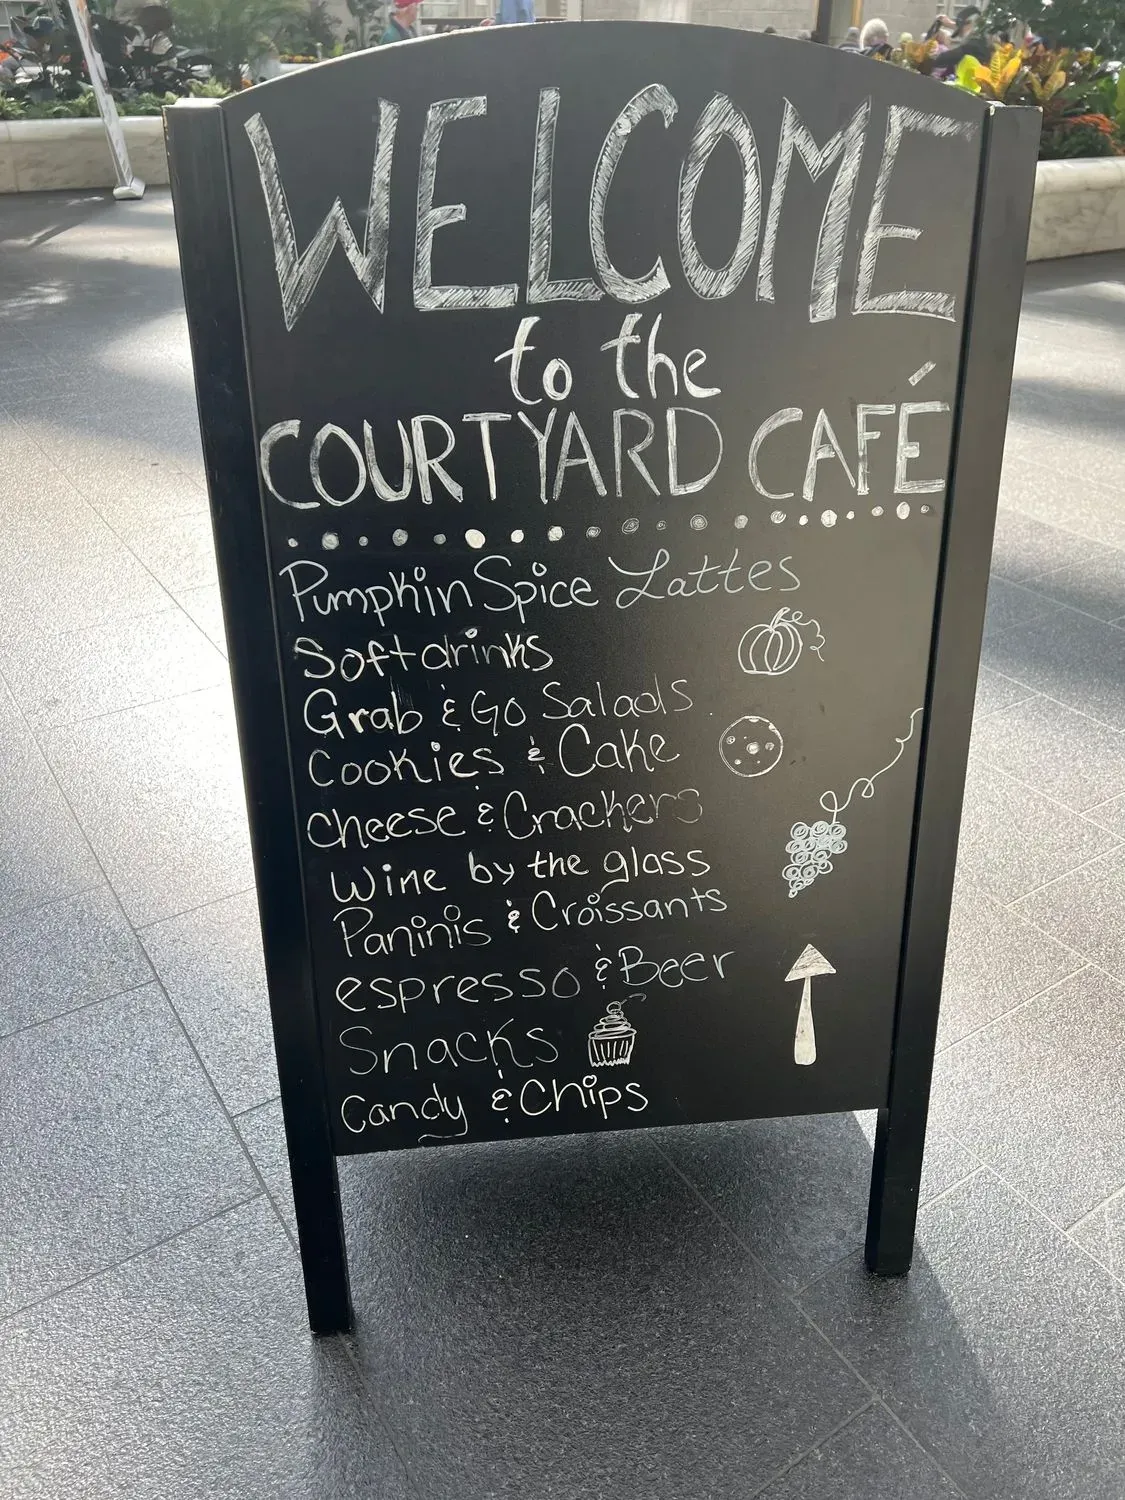 WELCOME
to the
COURTYARD CAFÉ
Pumpkin Spice Lattes
Soft drinks
Grab & Go Salads
Cookies & Cake
cheese & Crackers
Wine by the glass
Paninis & Croissants
espresso & Beer
Snacks
Candy & Chips